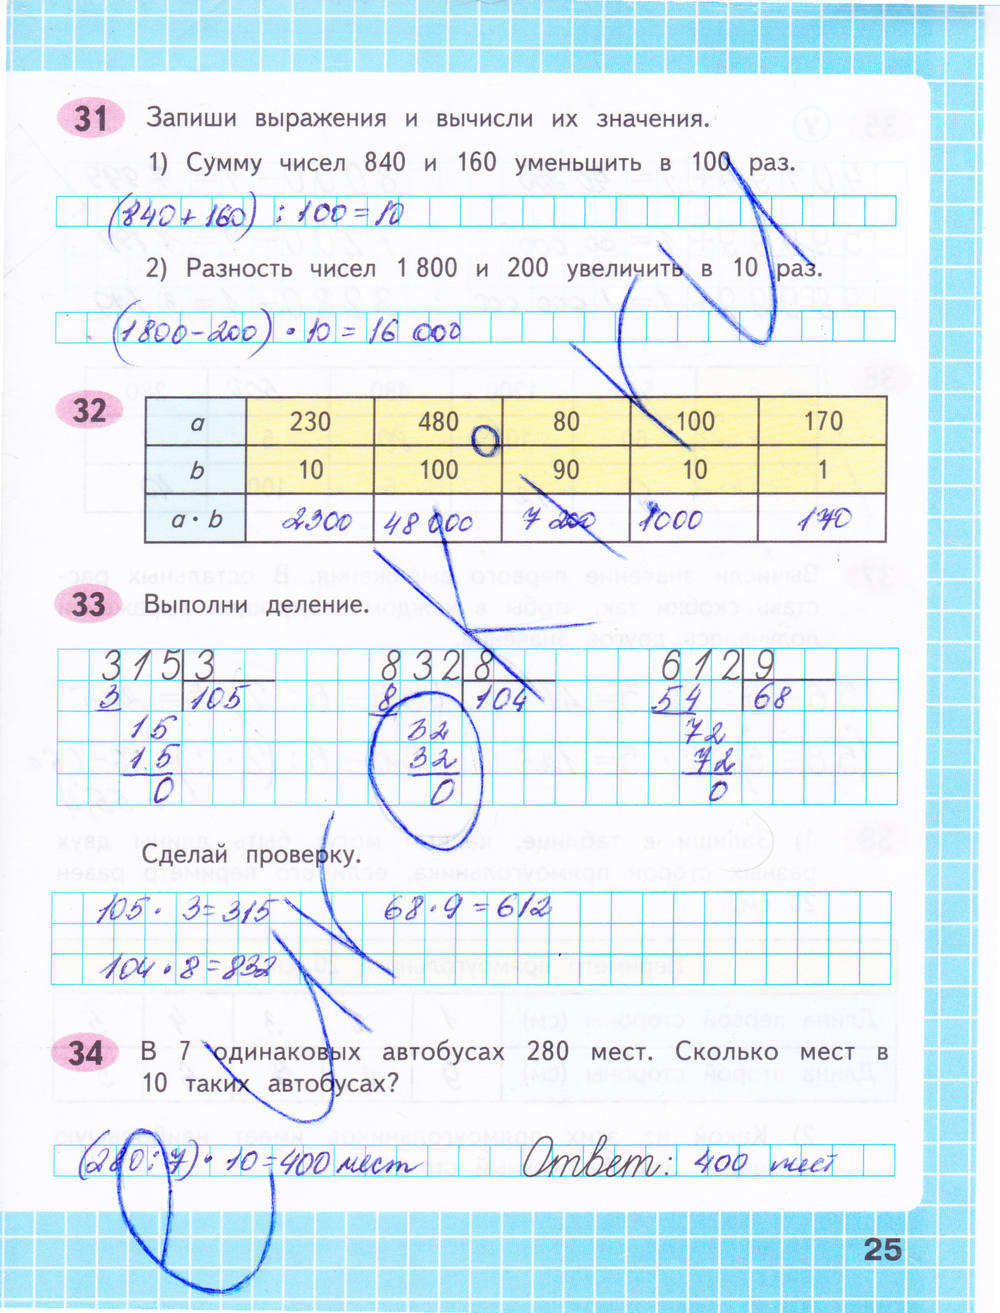 31 Запиши выражения и вычисли их значения.
1) Сумму чисел 840 и 160 уменьшить в 100 раз.
(840 + 160) : 100 = 10
2) Разность чисел 1 800 и 200 увеличить в 10 раз.
(1800 - 200) · 10 = 16 000
32
a 230 480 80 100 170
b 10 100 90 10 1
a · b 2300 48 000 7 200 1000 170
33 Выполни деление.
315 3 832 8 612 9
3 105 8 104 54 68
15 32 72
15 32 72
0 0 0
Сделай проверку.
105 · 3 = 315 68 · 9 = 612
104 · 8 = 832
34 В 7 одинаковых автобусах 280 мест. Сколько мест в
10 таких автобусах?
(280 : 7) · 10 = 400 мест Ответ: 400 мест
25